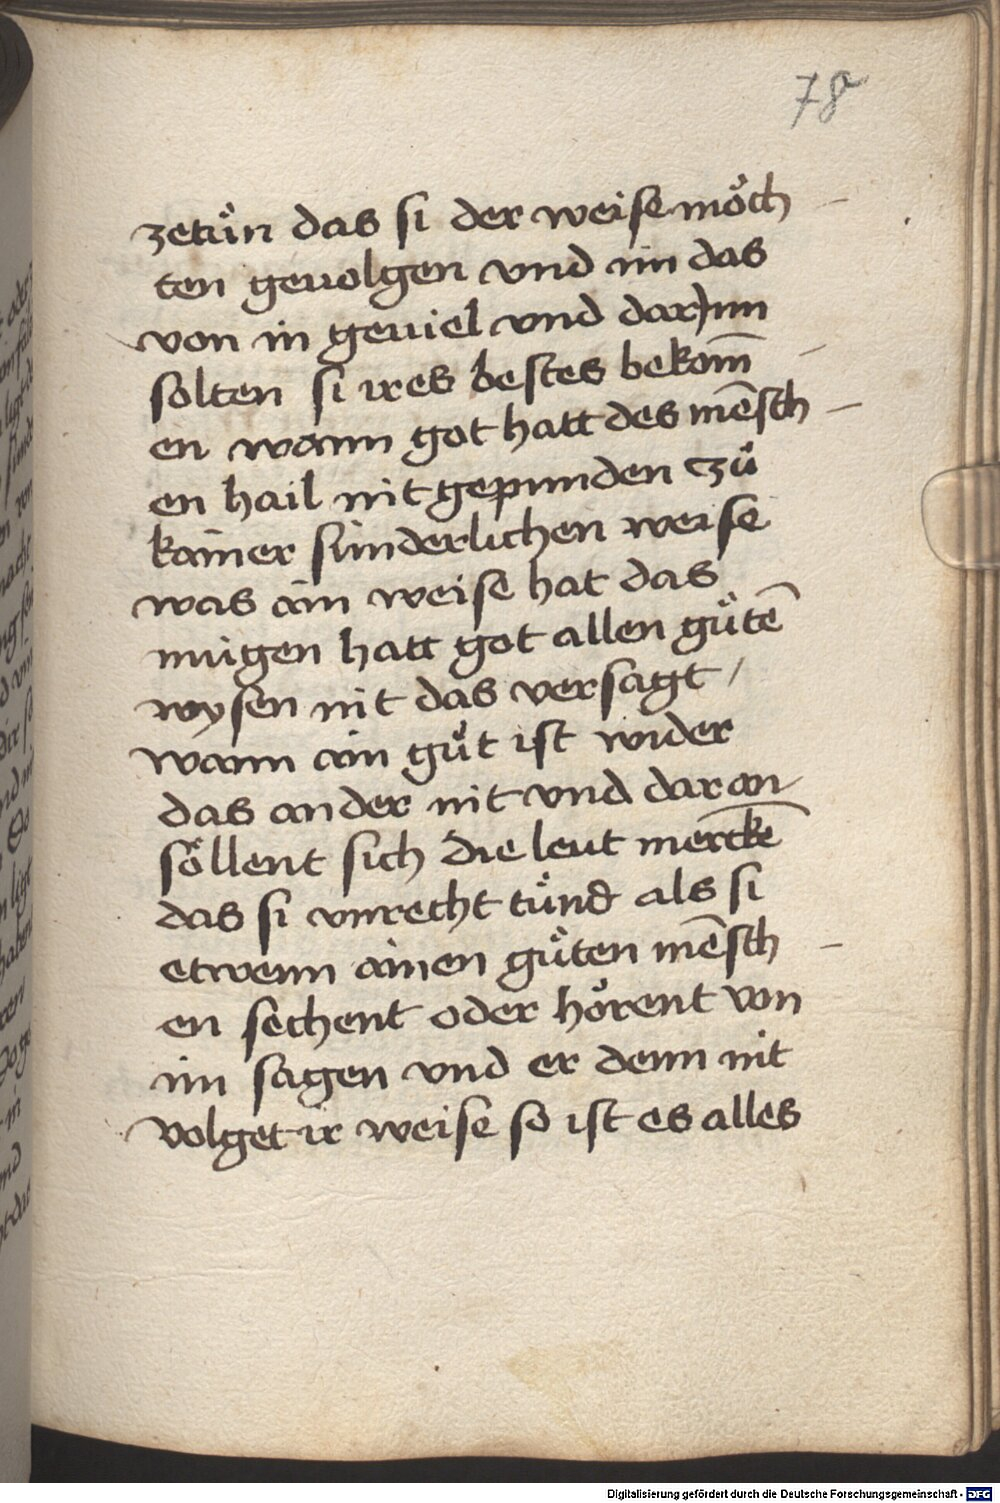 78
zetůn das si der weise möch
ten geuolgen vnd im das
von in geuiel vnd darjnn
solten si ires bestes bekom̄
en wann got hatt des mēsch
en hail nit gepunden zů
kainer sunderlichen weise
was ain weise hat das
mugen hatt got allen gůtē
wysen nit das versagt /
wann ain gůt ist wider
das ander nit vnd daran
söllent sich die leut merckē
das si vnrecht tůnd als si
etwenn ainen gůten mēsch
en sechent oder hörent von
im sagen vnd er denn nit
volget ir weise so ist es alles
Digitalisierung gefördert durch die Deutsche Forschungsgemeinschaft - DFG